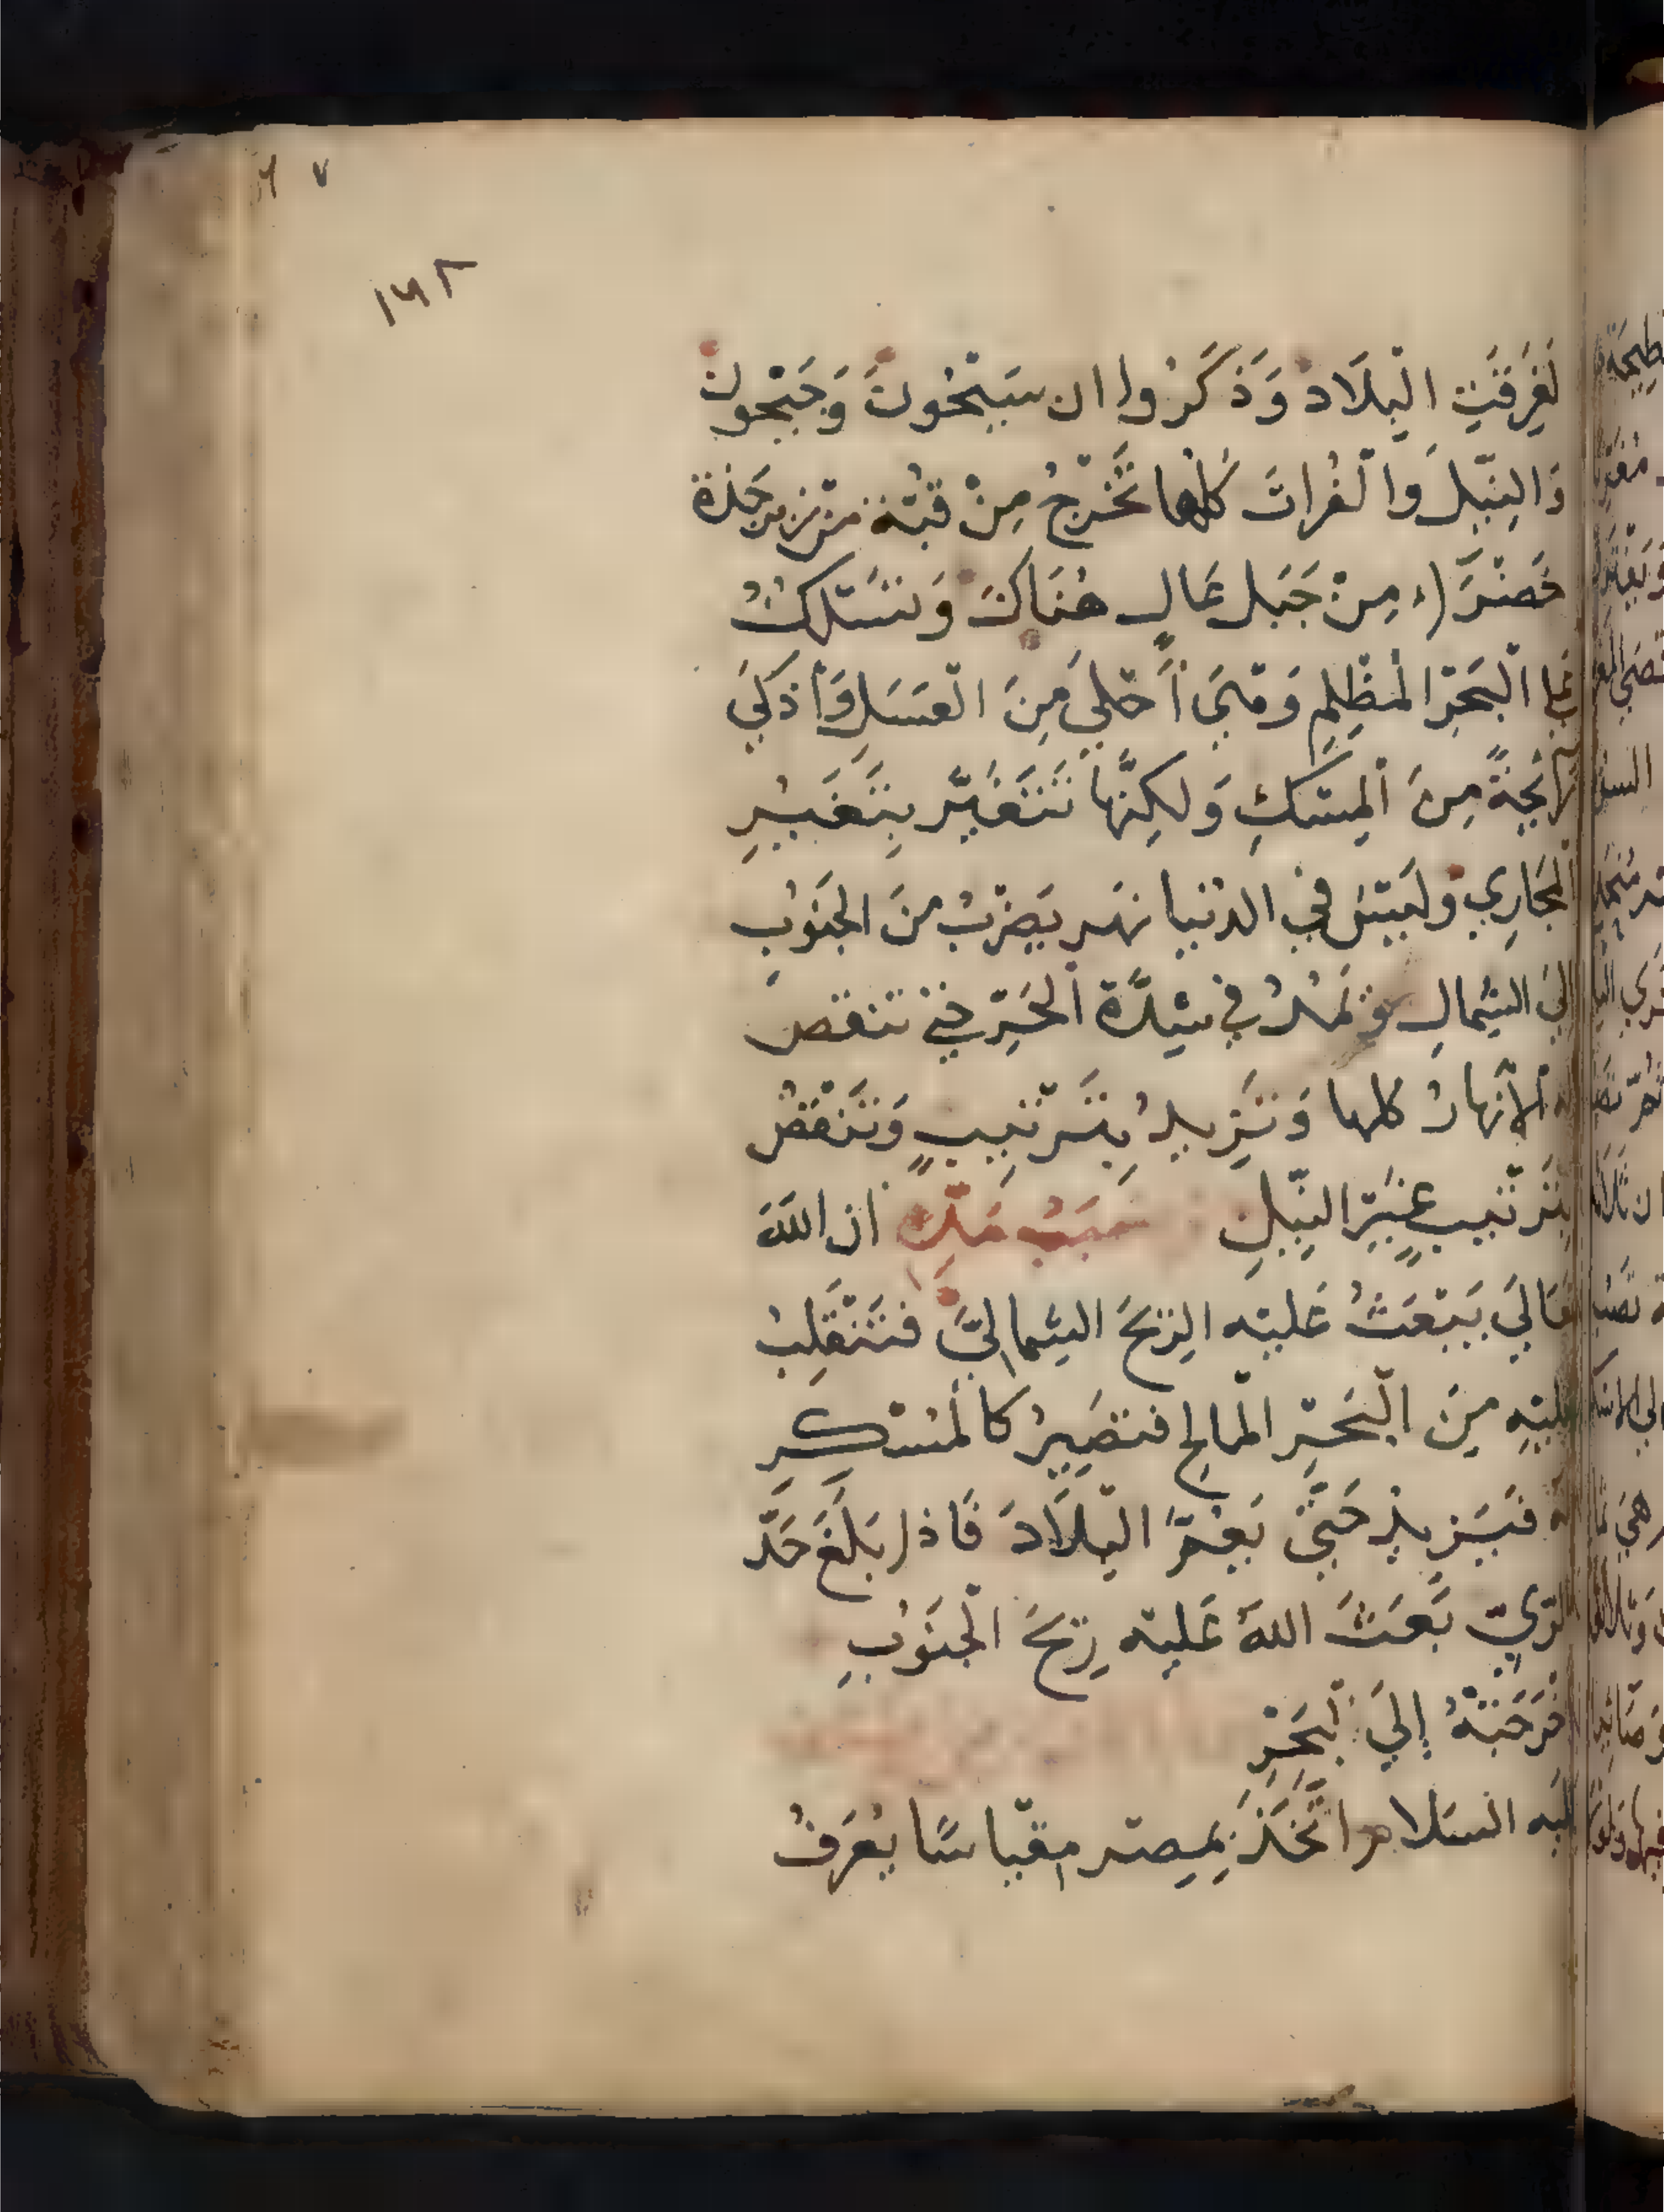 ٦٧
١٦٢
لَغَرِقَتِ الْبِلَاد وَذَكَرُوا ان سَيْحُونَ وَجَيْحُونَ
وَالنِّيلَ وَالْفُراتَ كلها تَخْرُجُ مِنْ قبّة من زبرجدة
خَضْرَاء مِنْ جَبَل عَالٍ هُنَاكَ وَتَسْلكُ
الْبَحْرَ الْمُظْلِمِ وَهْيَ أَحْلَي مِنَ الْعَسَلِ وَأَذكَي
رَائِحَةً مِنَ الْمِسْكِ وَلَكِنَّهَا تَتَغَيَّر بِتَغَيُّرِ
الْمجَارِي وَلَيْسَ في الدنيا نهر يَصُبُّ مِنَ الْجَنُوبِ
إلَي الشِّمالِ وَيَمُدُّ في شِدَّةِ الْحَرِّ حِينَ تنقص
الأنهارُ كلها وَيَزِيدُ بِتَرْتِيبٍ وَيَنْقُصُ
بِتَرْتيبٍ غَيْرَ النِّيلِ وسَبَبُ مَدِّهِ ان اللهَ
تعَالَي يَبْعَثُ عَلَيْه الرِّيحَ الشِّمالِيَّ فَتَنْقَلِبُ
عليْهِ مِنَ الْبَحْرِ الْمالح فتَصِيرُ كالْمُسْكِرِ
لَهُ فَيَزِيدُ حَتَّي يَعُمَّ الْبِلَادَ فَاذا بَلَغَ حَدَّ
الرِّيِّ بَعَثَ اللهُ عَلَيْه رِيحَ الْجَنُوبِ
فاخْرَجَتْهُ إلَي الْبَحْرِ
عليه السَلام اتَّخَذَ بِمِصْر مِقْيَاسًا يُعْرَفُ